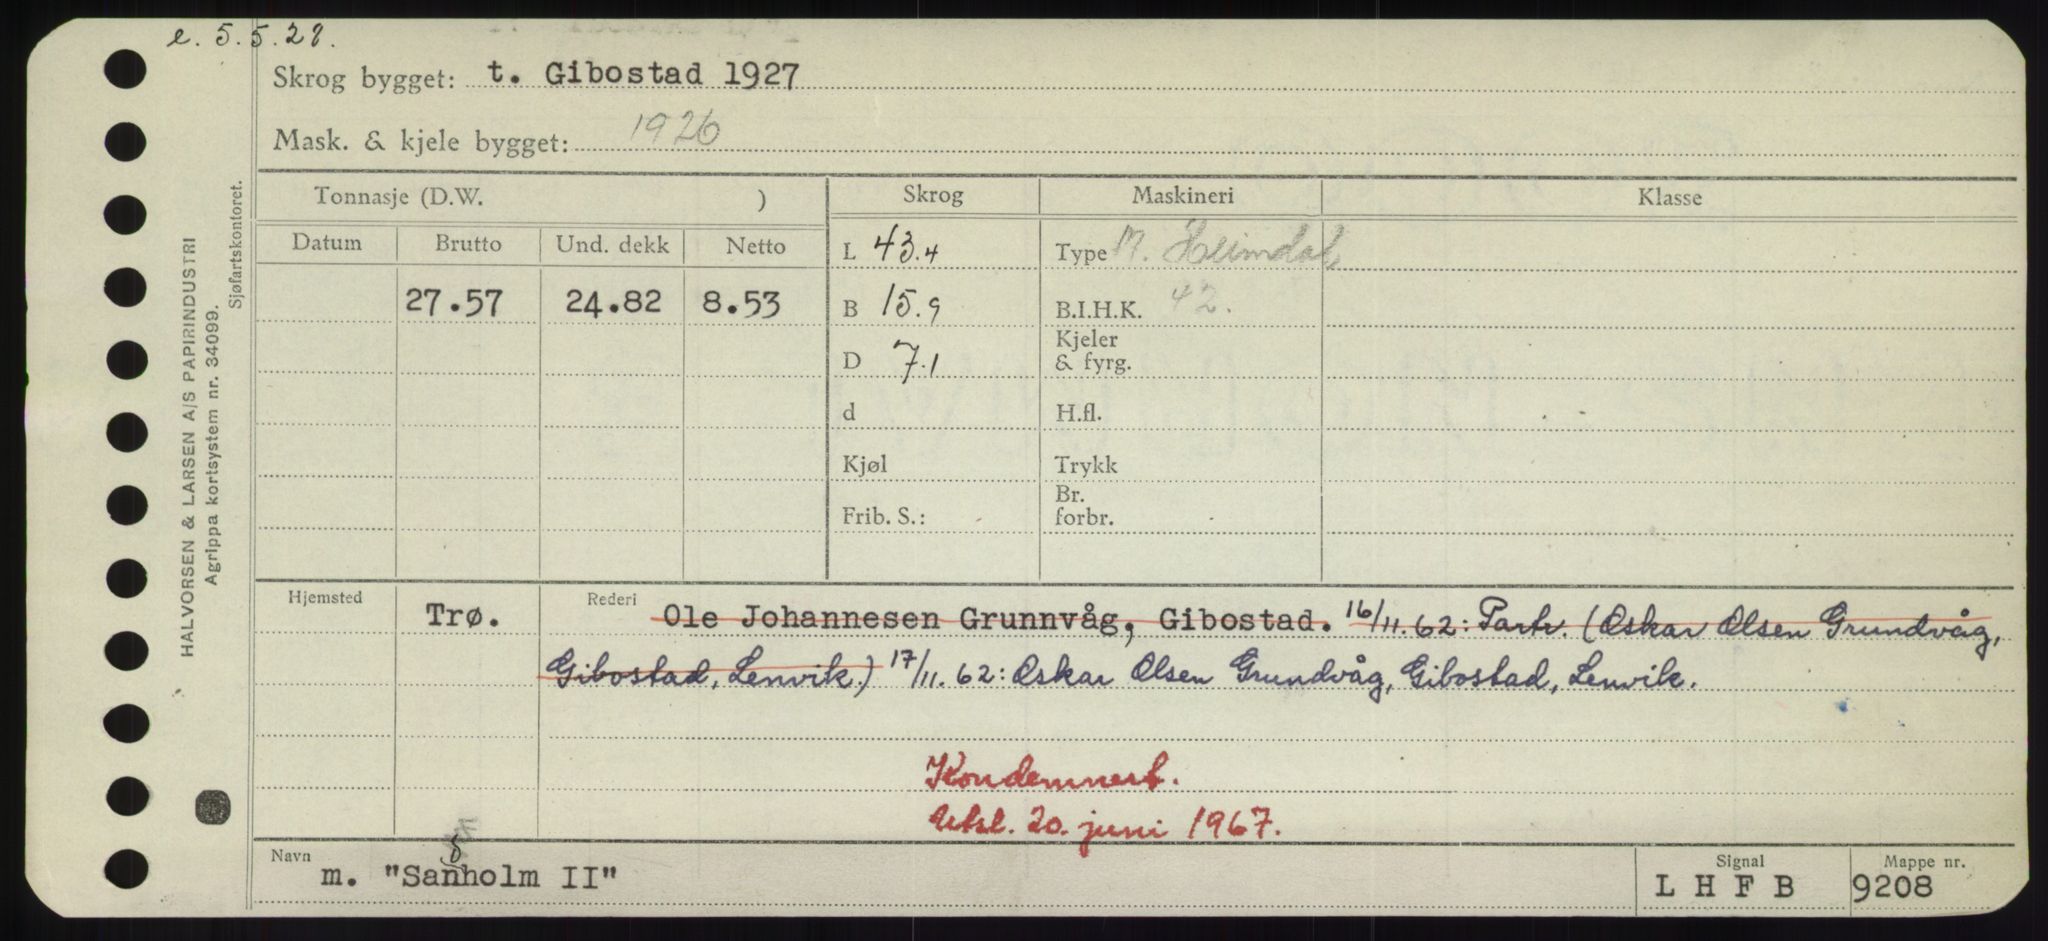 e. 5.5.28.
Skrog bygget: t. Gibostad 1927
Mask. & kjele bygget: 1926
HALVORSEN & LARSEN A/S PAPIRINDUSTRI
Agrippa kortsystem nr. 34099.
Sjøfartskontoret.
Tonnasje (D.W. ) Skrog Maskineri Klasse
Datum Brutto Und. dekk Netto L 43.4 Type M. Heimdal
27.57 24.82 8.53 B 15.9 B.I.H.K. 42.
D 7.1 Kjeler & fyrg.
d H.fl.
Kjøl Trykk
Frib. S.: Br. forbr.
Hjemsted Trø. Rederi Ole Johannesen Grunnvåg, Gibostad. 16/11.62: Partr. (Oskar Olsen Grundvåg,
Gibostad, Lenvik.) 17/11.62: Oskar Olsen Grundvåg, Gibostad, Lenvik.
Kondemnert.
Utsl. 20. juni 1967.
Navn m. "Sanholm II" Signal L H F B Mappe nr. 9208